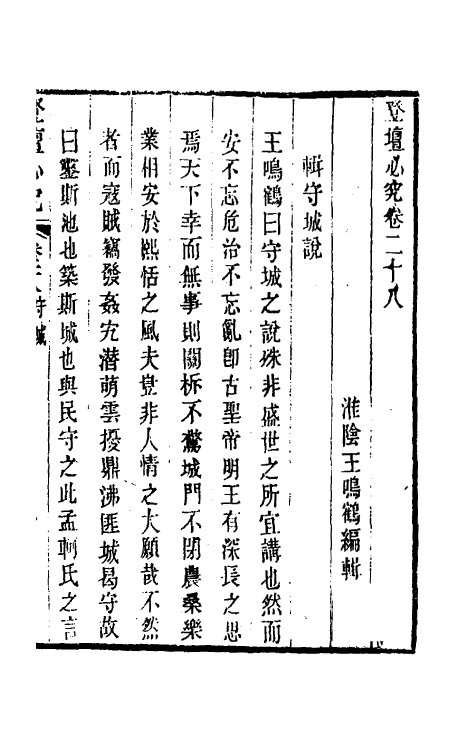 登壇必究卷二十八
淮陰王鳴鶴編輯
輯守城說
王鳴鶴曰守城之說殊非盛世之所宜講也然而
安不忘危治不忘亂卽古聖帝明王有深長之思
焉天下幸而無事則關柝不驚城門不閉農桑樂
業相安於熈恬之風夫豈非人情之大願哉不然
者而寇賊竊發姦宄潛萌雲擾鼎沸匪城曷守故
曰鑿斯池也築斯城也與民守之此孟軻氏之言